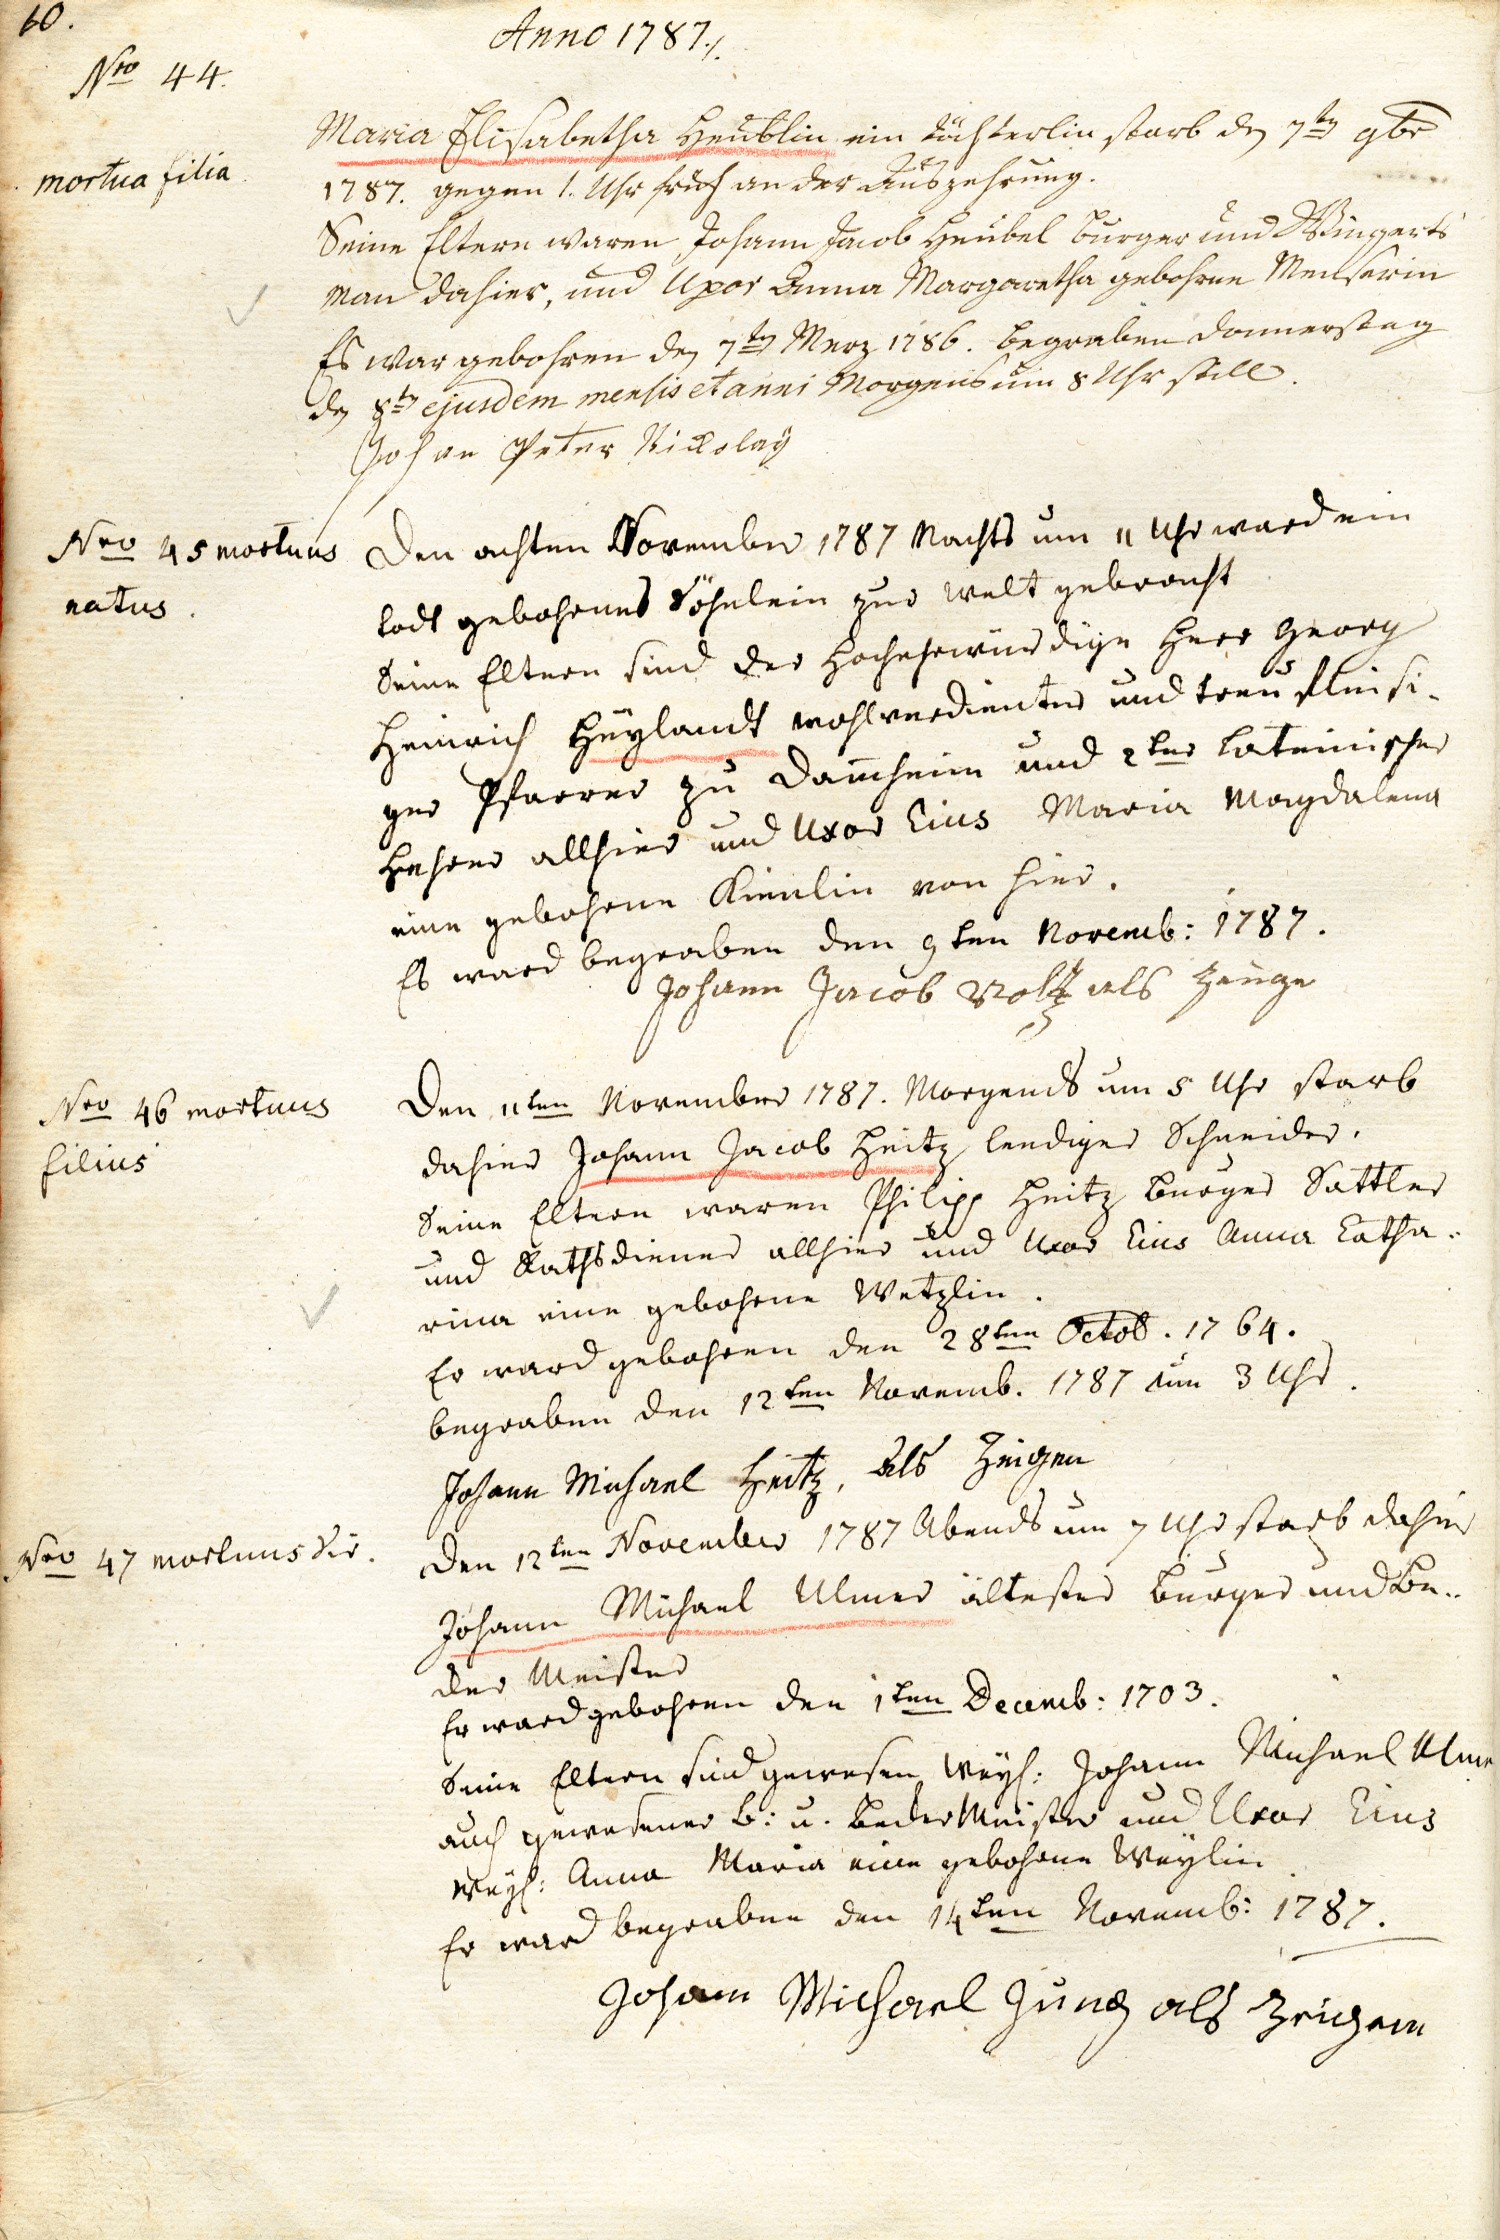 60.
Anno 1787./.
Nro 44.
mortua filia
Maria Elisabetha Heüblin ein töchterlin starb den 7ten 9br
1787. gegen 1. Uhr früh an der Auszehrung.
Seine Eltern waren Johann Jacob Heübel Burger und Wingerts
man dahier, und Uxor Anna Margaretha gebohrne Menserin
Es war gebohren den 7ten Merz 1786. begraben Donnerstag
den 8ten ejusdem mensis et anni Morgens um 8 Uhr still.
Johan Peter Nickolaÿ
Nro 45 mortuus
natus.
Den achten November 1787 Nachts um 11 Uhr ward ein
todt gebohrnes Söhnlein zur Welt gebracht
Seine Eltern sind der Hochehrwürdige Herr Georg
Heinrich Heylandt wohlverdienter und treu fleisi-
ger Pfarrer zu Damheim und 2ter Lateinischer
Lehrer allhier und Uxor Eius Maria Magdalena
eine gebohrne Kienlin von hier.
Es ward begraben den 9ten Novemb: 1787.
Johann Jacob Voltz als Zeuge
Nro 46 mortuus
filius
Den 11ten November 1787. Morgends um 5 Uhr starb
dahier Johann Jacob Heitz lendiger Schneider.
Seine Eltern waren Philipp Heitz Burger Sattler
und Rathsdiener allhier und Uxor Eius Anna Catha-
rina eine gebohrne Wetzlin.
Er ward gebohren den 28ten Octob. 1764.
begraben den 12ten Novemb. 1787 um 3 Uhr.
Johann Michael Heitz, als Zeigen
Nro 47 mortuus Vir.
Den 12ten November 1787 Abends um 7 Uhr starb dahier
Johann Michael Ulmer ältester Burger und Be-
der Meister
Er ward gebohren den 1ten Decemb: 1703.
Seine Eltern sind gewesen Weyl: Johann Michael Ulmer
auch gewesener B: u. Beder Meister und Uxor Eius
Weyl: Anna Maria eine gebohrne Weylin
Er ward begraben den 14ten Novemb: 1787.
Johann Michael Jung als Zeigem